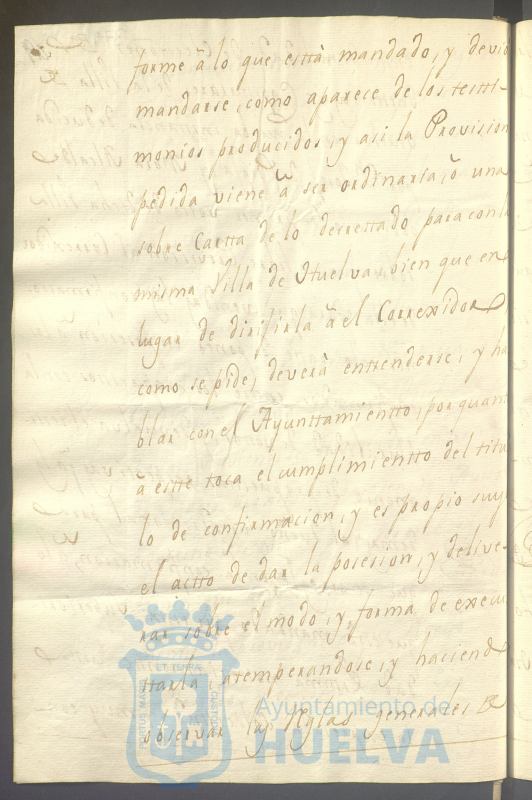 forme à lo que estâ mandado, y devio
mandarse, como aparece de los testti-
monios producidos, y asi la Provision
pedida viene à ser ordinaria, ô una
sobre Cartta de lo decrettado para con la
misma Villa de Huelva, bien que en
lugar de dirijirla â el Correxidor
como se pide, deverà entenderse, y ha
blar con el Ayunttamientto, por quant
â estte toca el cumplimientto del titu
lo de confirmacion, y es propio suyo
el actto de dar la posesion, y delive-
rar sobre el modo, y forma de execu
ttarla, atemperandose, y haciend
observar las Reglas generales
Ayuntamiento de
HUELVA